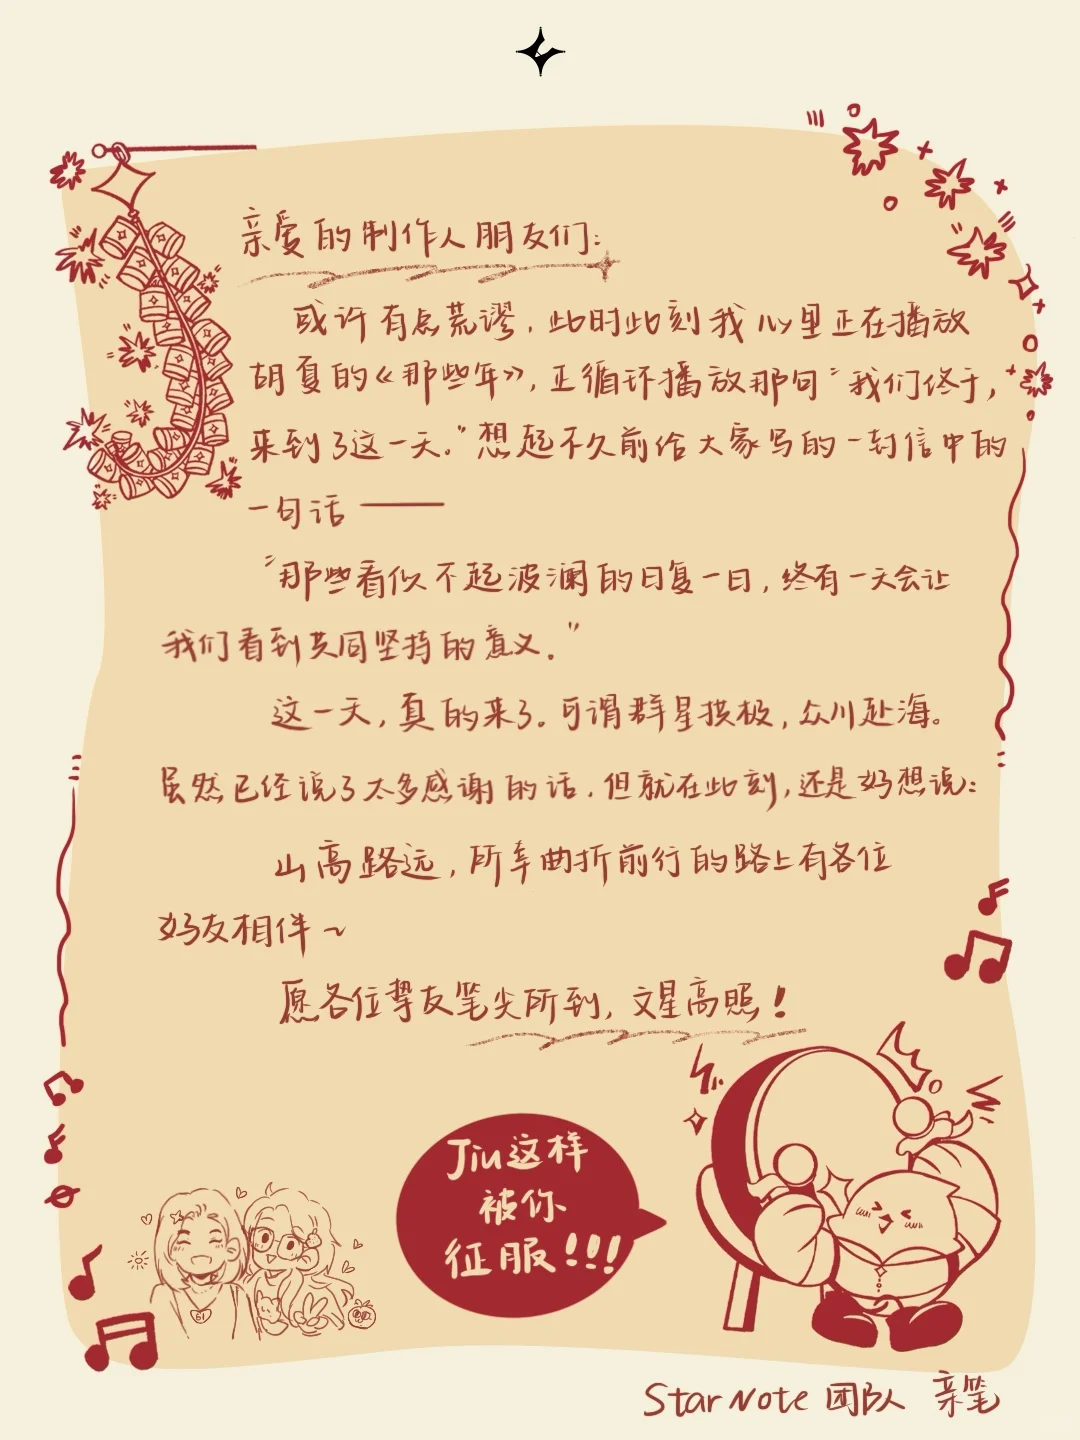 亲爱的制作人朋友们：
或许有点荒谬，此时此刻我心里正在播放
胡夏的《那些年》，正循环播放那句“我们终于，
来到了这一天。”想起不久前给大家写的一封信中的
一句话——
“那些看似不起波澜的日复一日，终有一天会让
我们看到共同坚持的意义。”
这一天，真的来了。可谓群星拱极，众川赴海。
虽然已经说了太多感谢的话，但就在此刻，还是好想说：
山高路远，所幸曲折前行的路上有各位
好友相伴～
愿各位挚友笔尖所到，文星高照！
Jiu这样
被你
征服!!!
61
StarNote 团队 亲笔